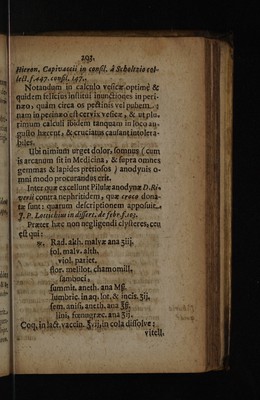 293.
Hieron. Capivaccii in consil. à Scholtzio col-
lect. f. 447. consil. 147.
Notandum in calculo vesicæ optimè &
quidem feliciùs institui inunctiones in peri-
næo, quàm circa os pectinis vel pubem.
nam in perinæo est cervix vesicæ, & ut plu-
rimum calculi ibidem tanquam in loco an-
gusto hærent, & cruciatus causant intolera-
biles.
Ubi nimium urget dolor, somnus (cum
is arcanum sit in Medicina, & supra omnes
gemmas & lapides pretiosos) anodynis o-
mni modo procurandus erit.
Inter quæ excellunt Pilulæ anodynæ D. Ri-
verii contra nephritidem, quæ croco dona-
tæ sunt: quarum descriptionem apposuit
J. P. Lotichius in dissert. de febr. f. 105.
Præter hæc non negligendi clysteres, ceu
est qui:
℞. Rad. alth. malvæ ana ʒiij.
fol. malv. alth.
viol. pariet.
flor. melilot. chamomill.
sambuci,
summit. aneth. ana Mß.
lumbric. in aq. lot. & incis. ʒij.
sem. anisi, aneth. ana ℥ß.
lini, fœnugræc. ana ʒij.
Coq. in lact. vaccin. in cola dissolve:
vitell.